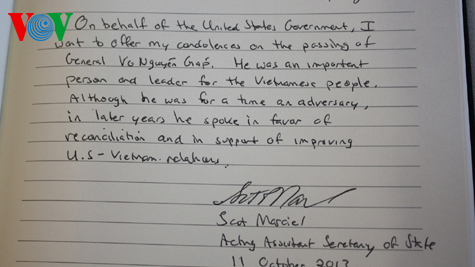 VOV
On behalf of the United States Government, I
want to offer my condolences on the passing of
General Vo Nguyên Giap. He was an important
person and leader for the Vietnamese people.
Although he was for a time an adversary,
in later years he spoke in favor of
reconciliation and in support of improving
U.S-Vietnam relations.
Scot Marciel
Acting Assistant Secretary of State
11 October 2013